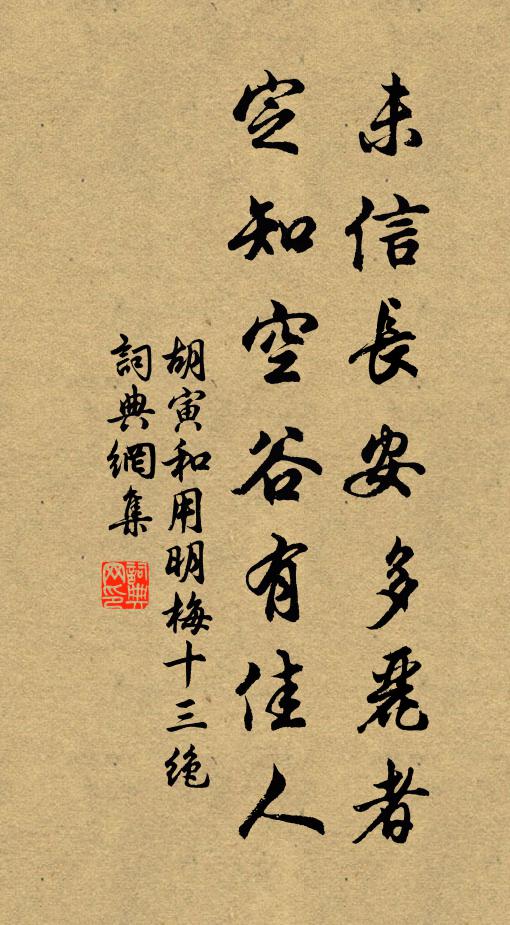 未信長安多麗者
定知空谷有佳人
胡寅和用明梅十三絶
詞典網集
詞典网印